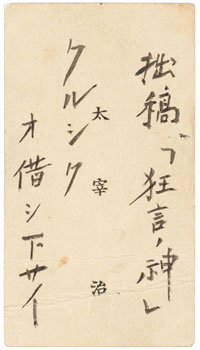 拙稿「狂言ノ神」
太宰治
クルシク
オ借シ下サイ